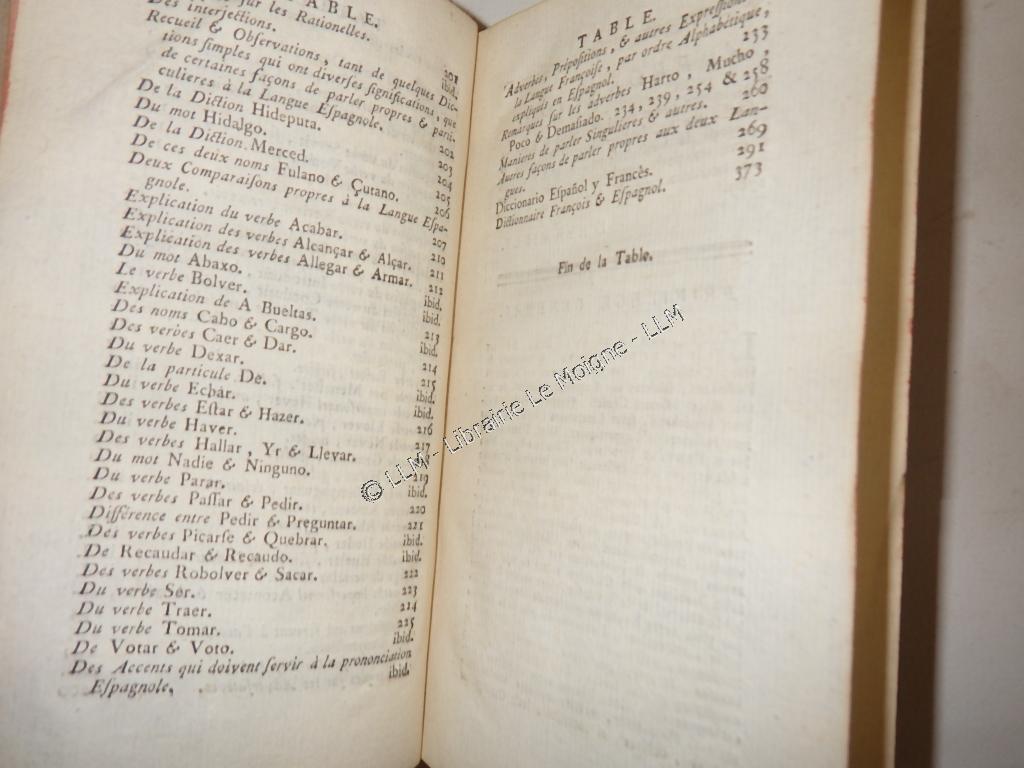 TABLE.
sur les Rationelles.
Des Interjections. 201
Recueil & Observations, tant de quelques Dic- ibid.
tions simples qui ont diverses significations, que
de certaines façons de parler propres & parti-
culieres à la Langue Espagnole.
De la Diction Hideputa. 202
Du mot Hidalgo. 203
De la Diction Merced. 204
De ces deux noms Fulano & Çutano. 205
Deux Comparaisons propres à la Langue Espa-
gnole. 206
Explication du verbe Acabar. 207
Explication des verbes Alcançar & Alçar. 210
Explication des verbes Allegar & Armar. 211
Du mot Abaxo. 212
Le verbe Bolver. ibid.
Explication de A Bueltas. ibid.
Des noms Cabo & Cargo. 213
Des verbes Caer & Dar. ibid.
Du verbe Dexar. 214
De la particule De. 215
Du verbe Echár. ibid.
Des verbes Estar & Hazer. ibid.
Du verbe Haver. 216
Des verbes Hallar, Yr & Llevar. 217
Du mot Nadie & Ninguno.
Du verbe Parar. 219
Des verbes Passar & Pedir. ibid.
Différence entre Pedir & Preguntar. 220
Des verbes Picarse & Quebrar. 221
De Recaudar & Recaudo. ibid.
Des verbes Robolver & Sacar. ibid.
Du verbe Ser. 222
Du verbe Traer. 223
Du verbe Tomar. 224
De Votar & Voto. 225
Des Accents qui doivent servir à la prononciation ibid.
Espagnole. ibid.
TABLE.
Adverbes, Prépositions, & autres Expressions
la Langue Françoise, par ordre Alphabétique,
expliqués en Espagnol. 233
Remarques sur les adverbes Harto, Mucho,
Poco & Demasiado. 234, 239, 254 & 258
Manieres de parler Singulieres & autres. 260
Autres façons de parler propres aux deux Lan-
gues. 269
Diccionario Español y Francès. 291
Dictionnaire François & Espagnol. 373
Fin de la Table.
© LLM - Librairie Le Moigne - LLM